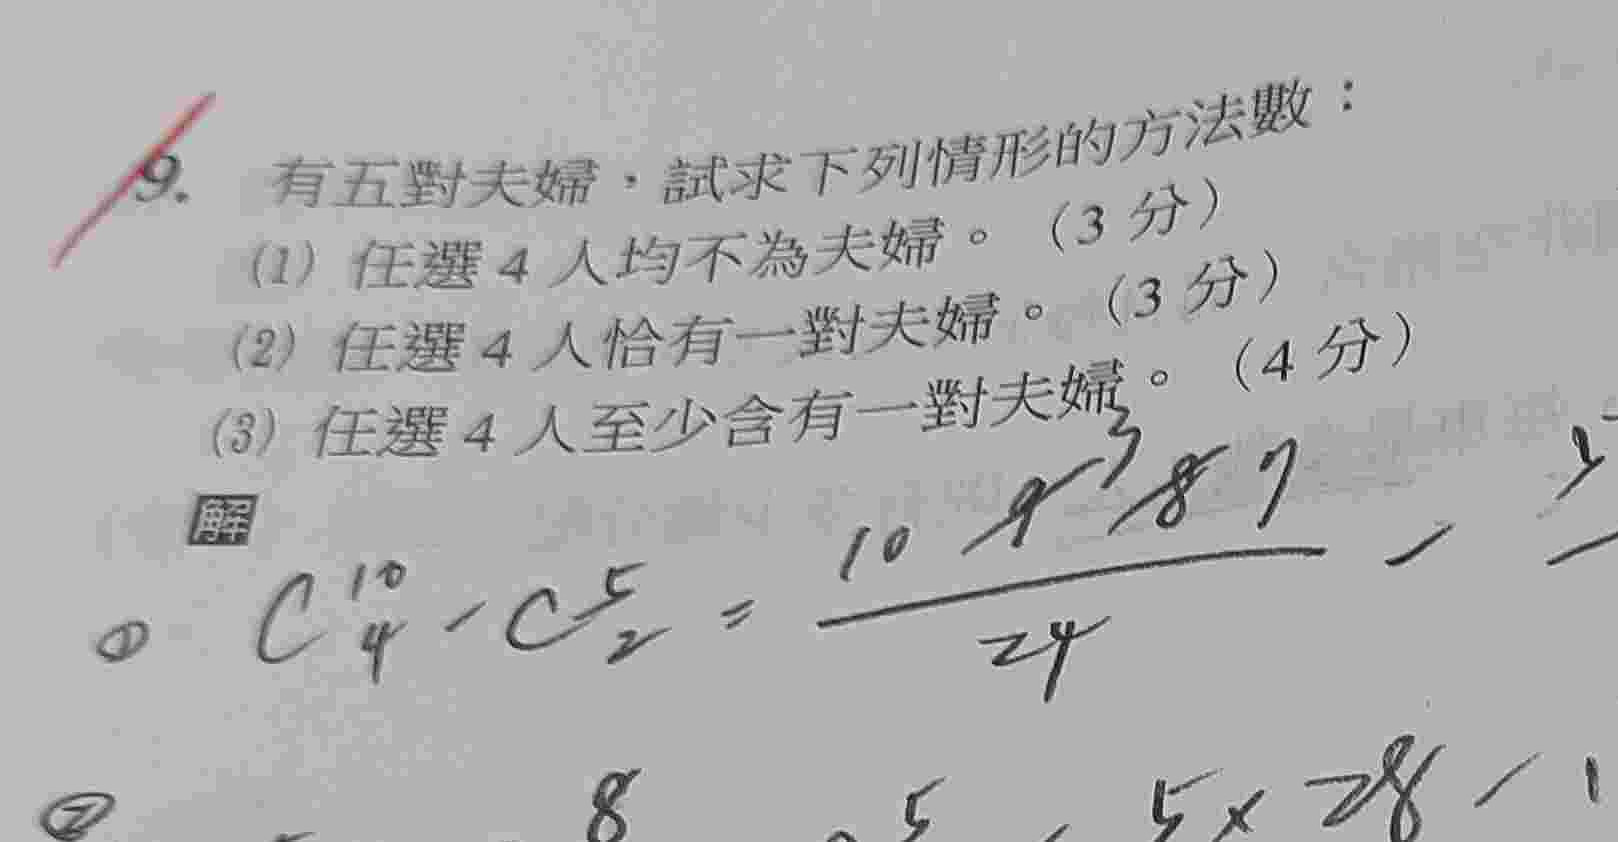 9. 有五對夫婦，試求下列情形的方法數：
(1) 任選 4 人均不為夫婦。（3 分）
(2) 任選 4 人恰有一對夫婦。（3 分）
(3) 任選 4 人至少含有一對夫婦。（4 分）
解
① C 10 4 - C 5 2 = 10 9 3 8 7 / 24 -
② 8 5 5 × 28 - 1